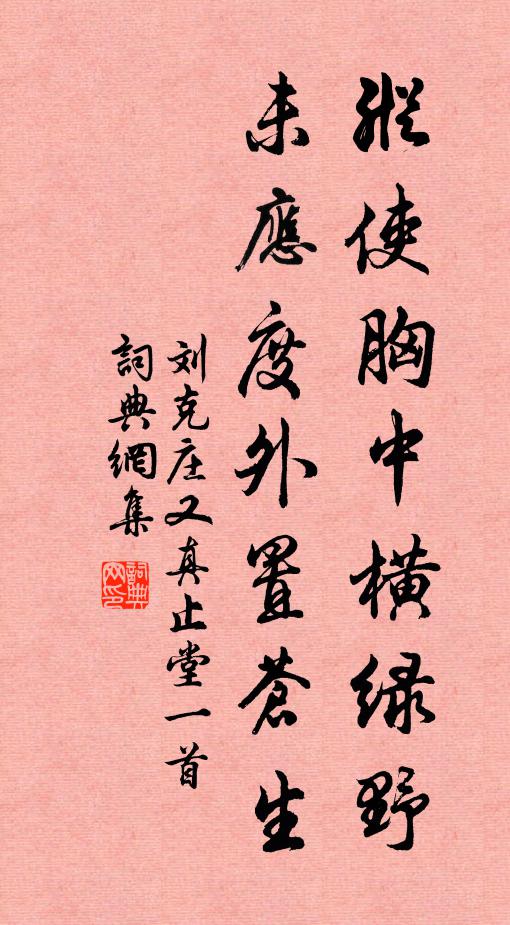 縱使胸中橫绿野
未應度外置蒼生
刘克庄又真止堂一首
詞典網集
詞典
网印